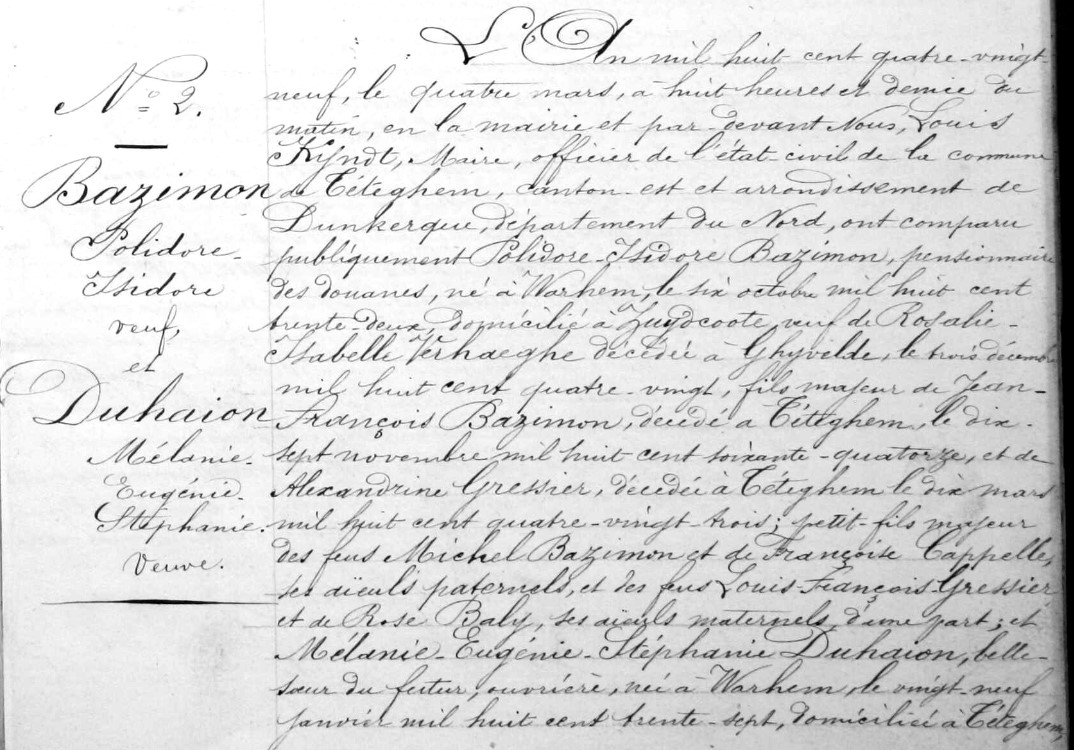 N° 2.
Bazimon
Polidore-
Isidore
veuf,
et
Duhaion
Mélanie-
Eugénie-
Stéphanie.
veuve.
L'An mil huit cent quatre-vingt
neuf, le quatre mars, à huit heures et demie du
matin, en la mairie et par-devant Nous, Louis
Kyndt, Maire, officier de l'état-civil de la commune
de Téteghem, canton-est et arrondissement de
Dunkerque, département du Nord, ont comparu
publiquement Polidore-Isidore Bazimon, pensionnaire
des douanes, né à Warhem, le six octobre mil huit cent
trente-deux, domicilié à Zuydcoote, veuf de Rosalie-
Isabelle Verhaeghe décédée à Ghyvelde, le trois décembre
mil huit cent quatre-vingt, fils majeur de Jean-
François Bazimon, décédé à Téteghem, le dix-
sept novembre mil huit cent soixante-quatorze, et de
Alexandrine Gressier, décédée à Téteghem le dix mars
mil huit cent quatre-vingt-trois; petit-fils majeur
des feus Michel Bazimon et de Françoise Cappelle,
ses aïeuls paternels, et des feus Louis-François Gressier
et de Rose Baly, ses aïeuls maternels, d'une part; et
Mélanie-Eugénie-Stéphanie Duhaion, belle-
sœur du futur, ouvrière, née à Warhem, le vingt-neuf
janvier mil huit cent trente-sept, domiciliée à Téteghem,